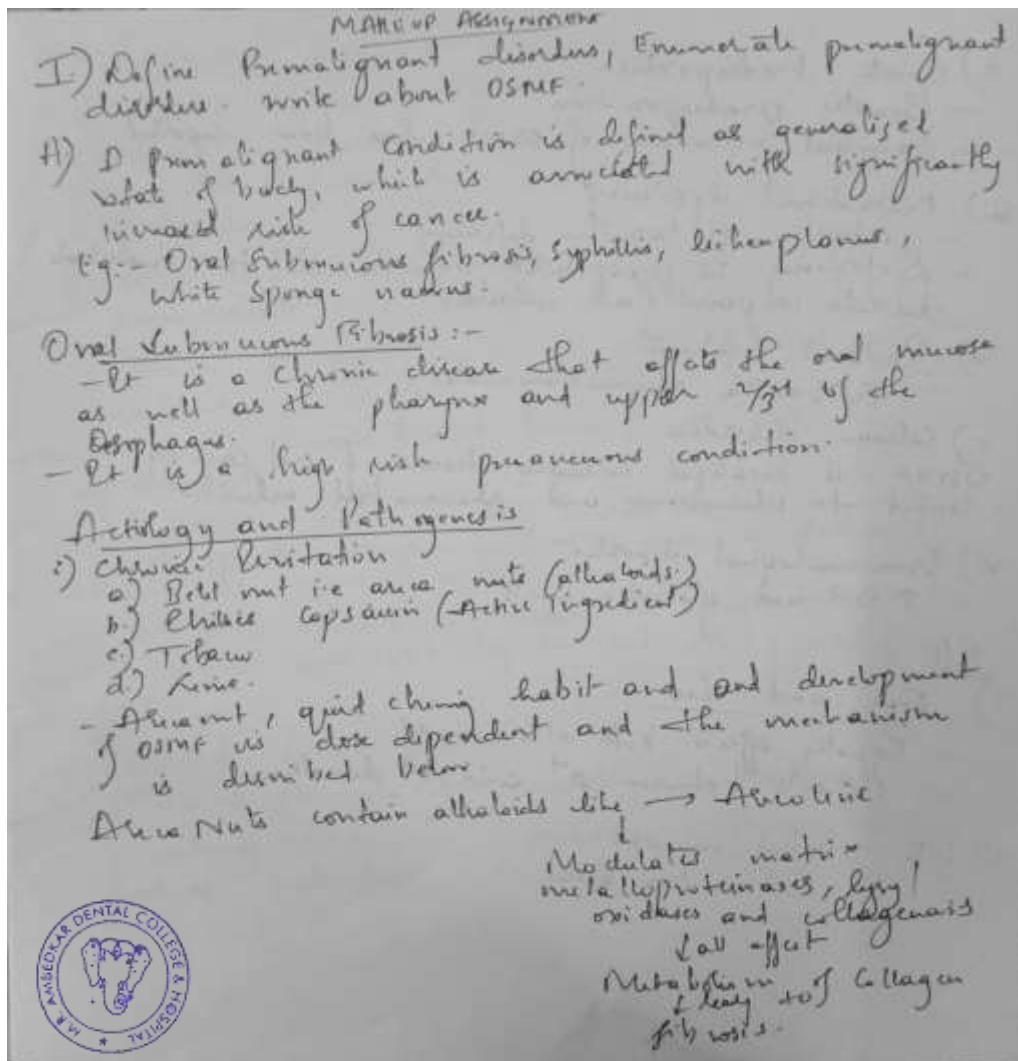 MAKEUP Assignment
I) Define Premalignant disorders, Enumerate premalignant
disorders. write about OSMF.
A) A premalignant condition is defined as generalized
state of body, which is associated with significantly
increased risk of cancer.
Eg:- Oral Submucous fibrosis, Syphillis, lichen planus,
white Sponge
Oral Submucous Fibrosis :-
- It is a Chronic disease that affects the oral mucosa
as well as the pharynx and upper 2/3rd of the
Oesophagus.
- It is a high risk precancerous condition.
Aetiology and Pathogenesis
i) Chronic Irritation
a) Betel nut i.e areca nuts (alkaloids.)
b.) Chillies capsaicin (-Active Ingredient)
c.) Tobacco
d.) Lime.
- Arecanut, quid chewing habit and and development
of OSMF is dose dependent and the mechanism
is described below
Areca Nuts contain alkaloids like → Arecoline
↓
Modulates matrix
metalloproteinases, lysyl
oxidases and collagenases
↓ all affect
Metabolism of Collagen
↓ leads to
fibrosis.
M.R. AMBEDKAR DENTAL COLLEGE & HOSPITAL